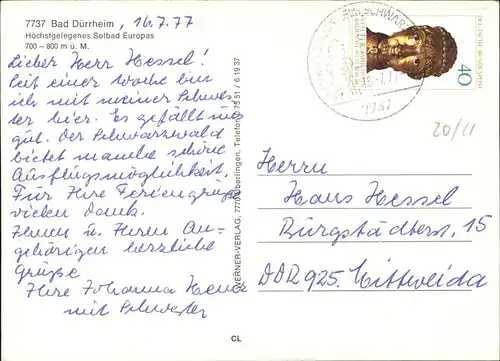 7737 Bad Dürrheim, 16.7.77
Höchstgelegenes Solbad Europas
700 – 800 m ü. M.
Lieber Herr Hessel!
Seit einer Woche bin
ich mit meiner Schwes-
ter hier. Es gefällt uns
gut. Der Schwarzwald
bietet manche schöne
Ausflugsmöglichkeit.
Für Ihre Feriengrüße
vielen Dank.
Ihnen u. Ihren An-
gehörigen herzliche
Grüße
Ihre Johanna
mit Schwester
CL
WERNER-VERLAG, 7770 Überlingen, Telefon 0 75 51 / 6 19 37
DEUTSCHE BUNDESPOST
40
7737
20/11
Herrn
Hans Hessel
Burgstädterstr. 15
DDR 925. Mittweida